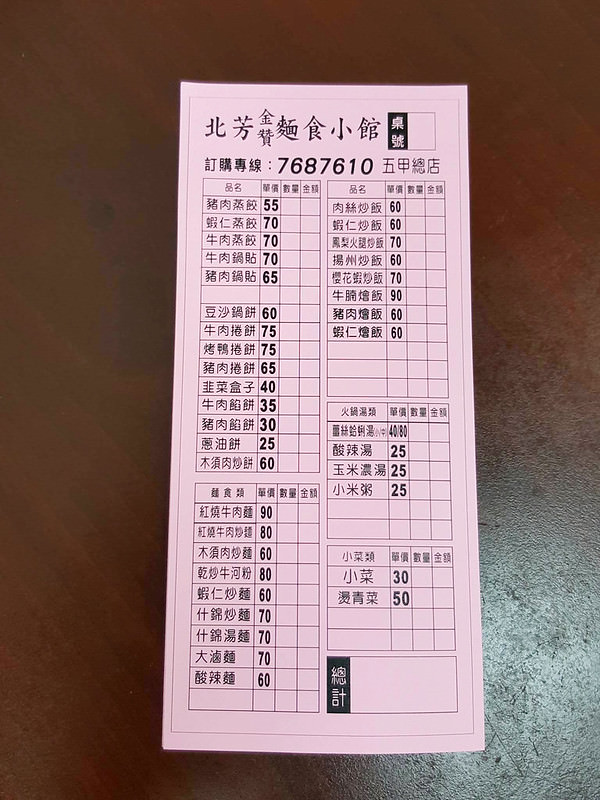 北芳金贊麵食小館 桌號
訂購專線：7687610 五甲總店
品名 單價 數量 金額
豬肉蒸餃 55
蝦仁蒸餃 70
牛肉蒸餃 70
牛肉鍋貼 70
豬肉鍋貼 65
豆沙鍋餅 60
牛肉捲餅 75
烤鴨捲餅 75
豬肉捲餅 65
韭菜盒子 40
牛肉餡餅 35
豬肉餡餅 30
蔥油餅 25
木須肉炒餅 60
麵食類 單價 數量 金額
紅燒牛肉麵 90
紅燒牛肉炒麵 80
木須肉炒麵 60
乾炒牛河粉 80
蝦仁炒麵 60
什錦炒麵 70
什錦湯麵 70
大滷麵 70
酸辣麵 60
品名 單價 數量 金額
肉絲炒飯 60
蝦仁炒飯 60
鳳梨火腿炒飯 70
揚州炒飯 60
櫻花蝦炒飯 70
牛腩燴飯 90
豬肉燴飯 60
蝦仁燴飯 60
火鍋湯類 單價 數量 金額
薑絲蛤蜊湯(小/中) 40/80
酸辣湯 25
玉米濃湯 25
小米粥 25
小菜類 單價 數量 金額
小菜 30
燙青菜 50
總計